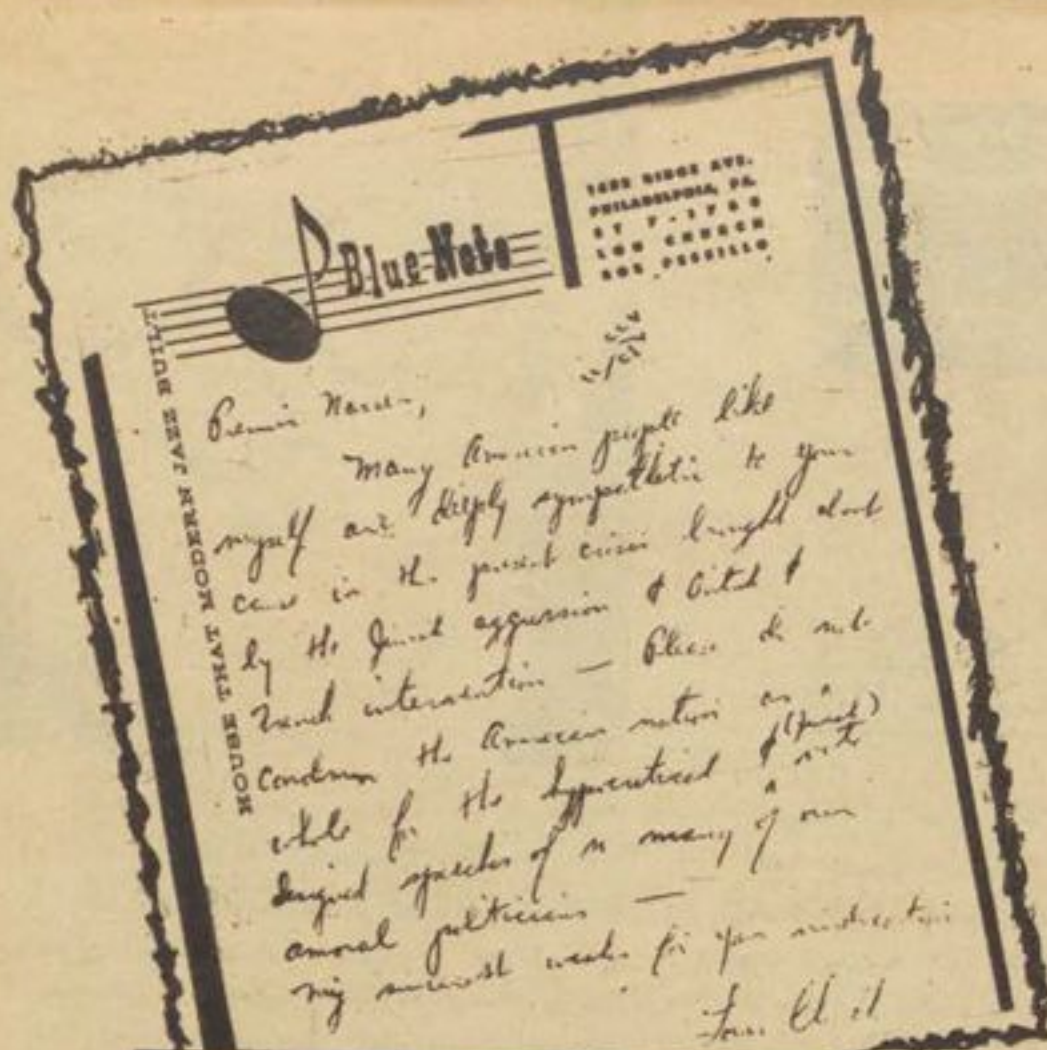 Blue Note
RIDGE AVE.
PHILADELPHIA, PA.
LOU CHURCH
HOUSE THAT MODERN JAZZ BUILT
Many American people like
myself are deeply sympathetic to your
cause in the present crisis brought about
by the aggression &
French intervention — Please do not
condemn the American nation as a
whole for the hypocritical &
designed speeches of so many of our
amoral politicians —
My sincerest wishes for your